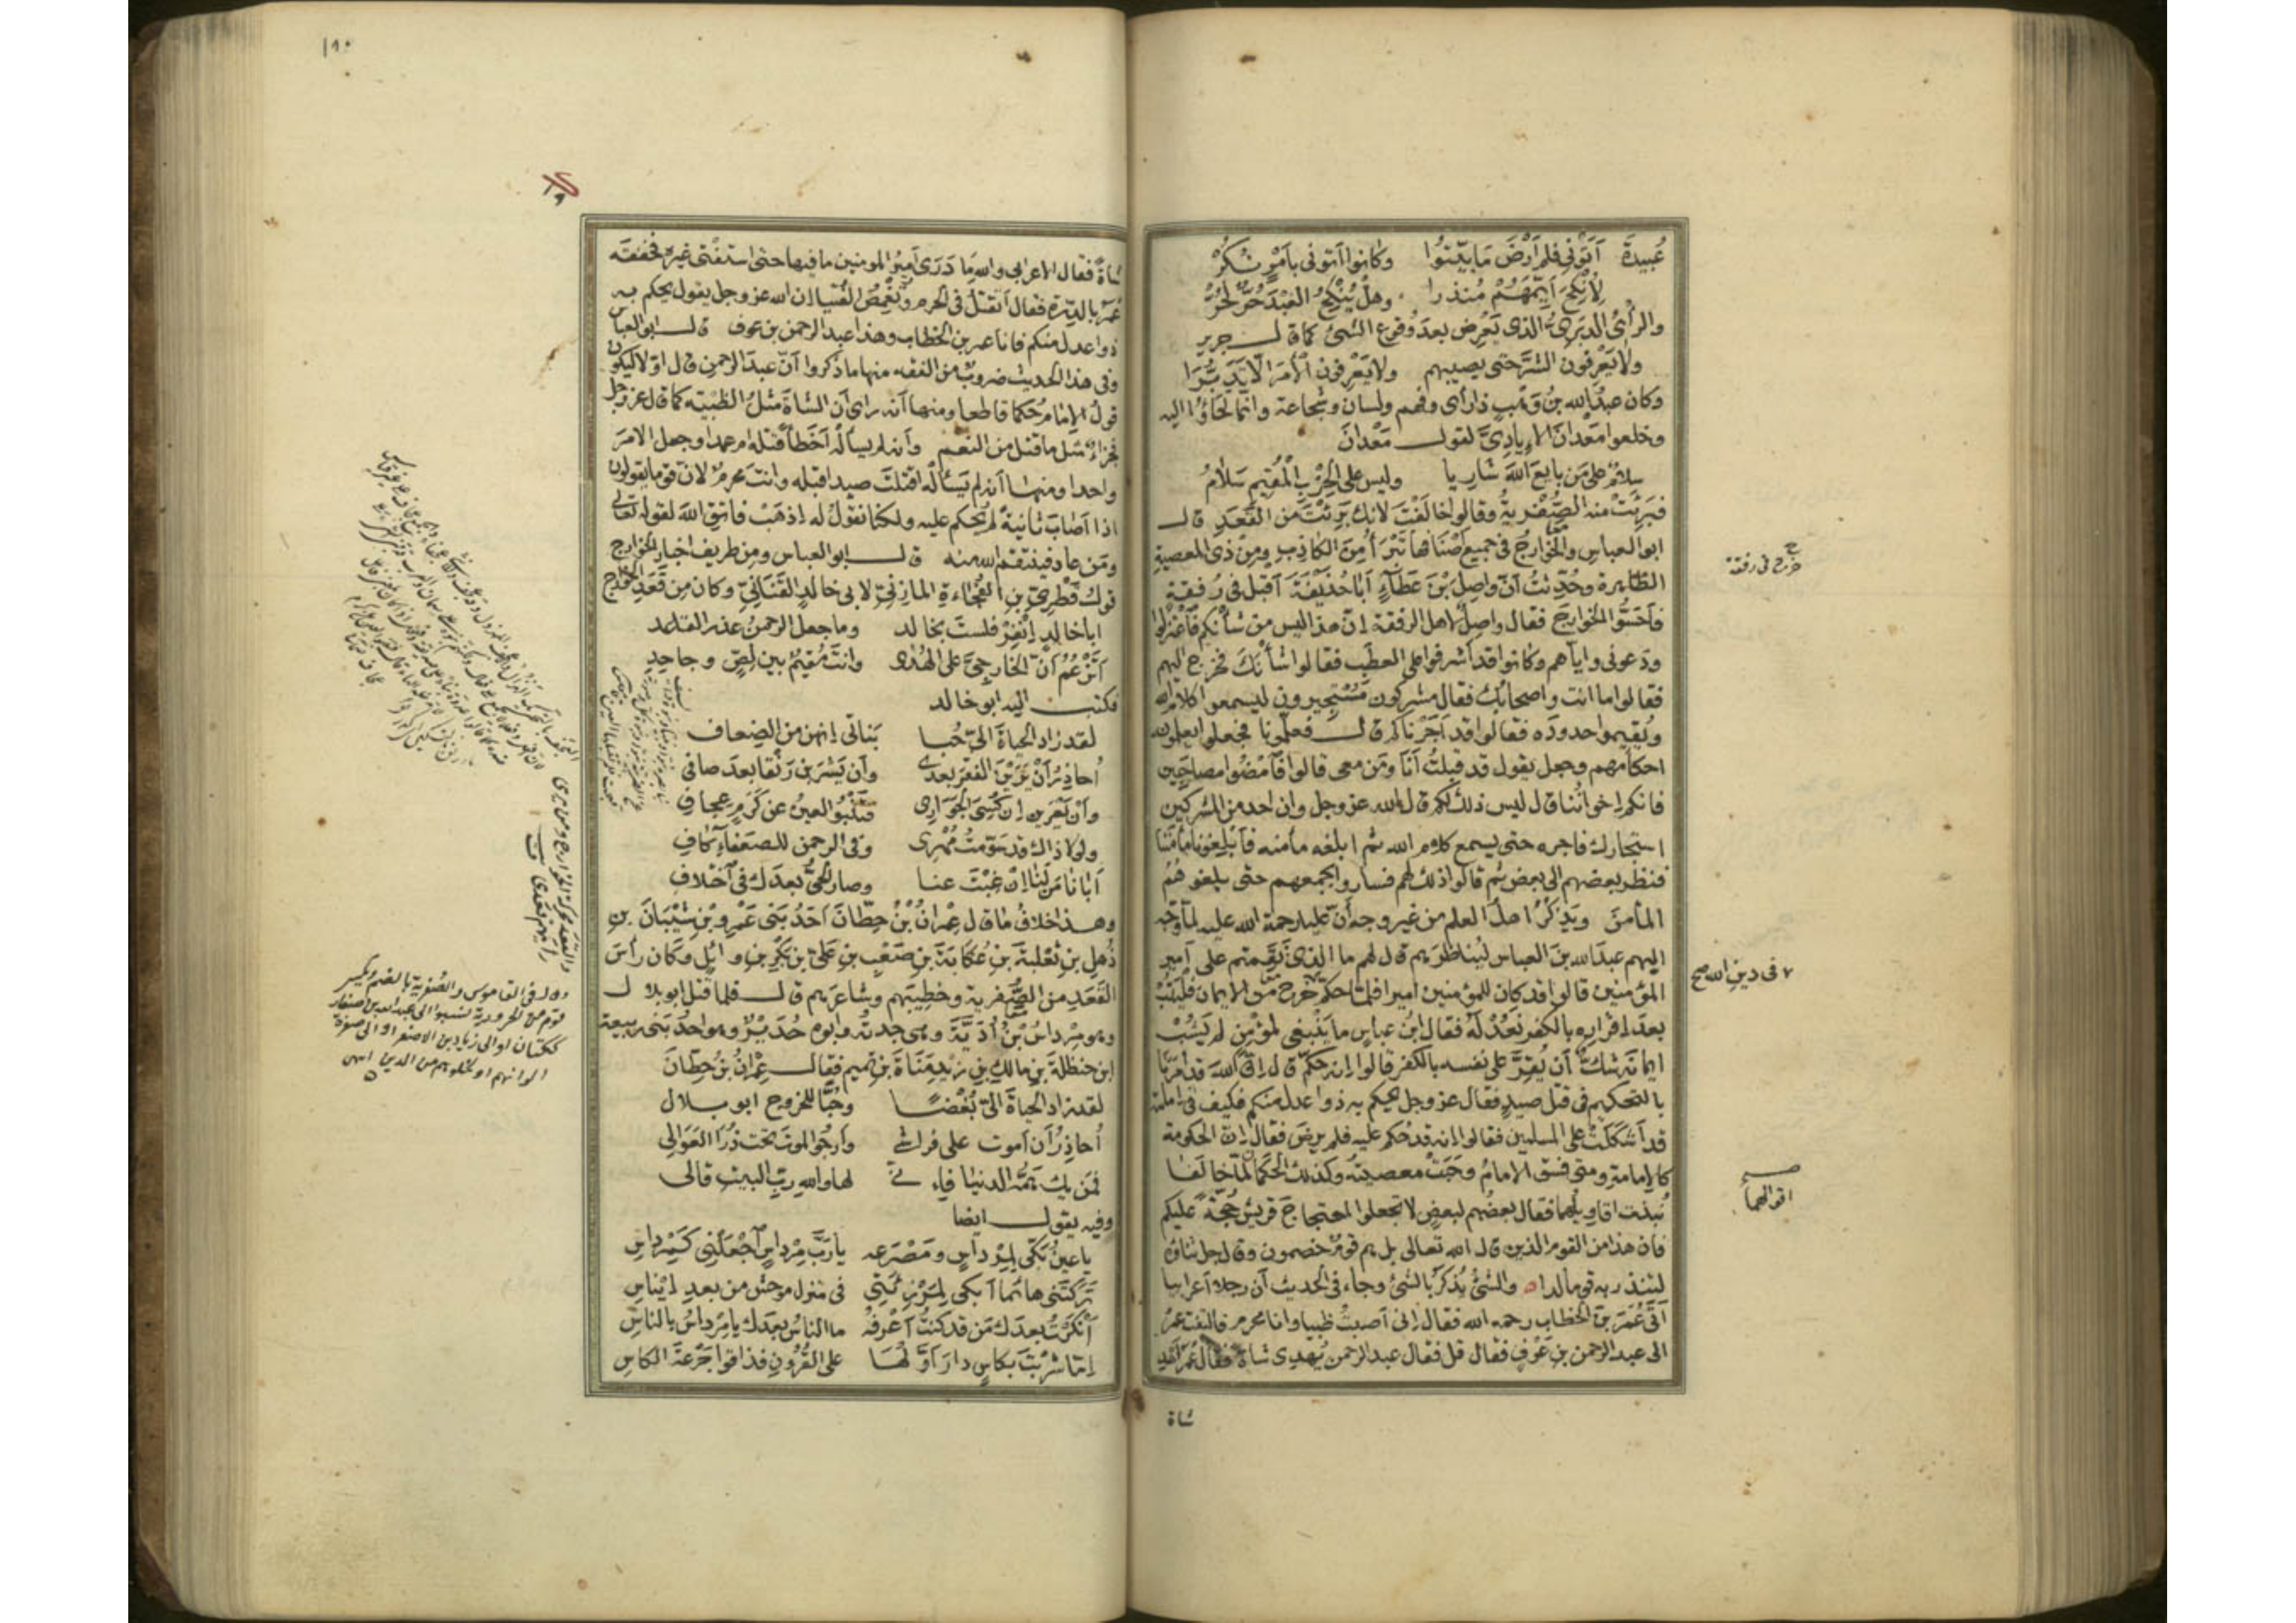 عُبيدةَ أَتَوْني فلم أَرْضَ مَا بيّتُوا وكانوا أتوني بأمْرٍ نُكُرْ
لِأُنْكِحَ أَيِّمَهُمْ مُنذرا وهلْ يُنْكِحُ العَبْدَ حُرٌّ لِحُرّْ
والرأىُ الدبَرىُّ الذى يَعْرِض بعدَ وُقوع الشئ كما قال جرير
ولا يَعْرفون الشرَّ حتى يصيبهم ولا يَعْرِفون الأمرَ إلا تَدَبُّرَا
وكان عبدُالله بنُ وَهْبٍ ذا رأى وفهم ولسان وشجاعة وانما لجَاؤُا اليه
وخلعوا مَعْدانَ الإياديَّ لقول مَعْدانَ
سلامٌ على مَن بايعَ اللهَ شاريا وليس على الحِزْبِ الْمُقيمِ سَلَامُ
فبَرِئَتْ منه الصُّفْرِيةُ وقالوا خالَفْتَ لانك بَرِئْتَ من القَعَدِ قال
ابو العباس والخوارجُ في جميع أصْنافها تَبْرَأُ مِنَ الكاذبِ ومِنْ ذى المعصيةِ
الظاهرة وحُدِّثتُ أنّ واصِلَ بْنَ عَطَآءٍ أبا حُذَيْفَةَ أقبل في رُفقةٍ
فأحَسُّوا الخوارجَ فقال واصلٌ لاهل الرفقة إنّ هذا ليس من شأنكم فأعتزلوا
ودعونى واياهم وكانوا قد أشرفوا على العطب فقالوا شأنَكَ فخرج اليهم
فقالوا ما انت واصحابُك فقال مشركون مُسْتَجِيرون ليسمعوا كلام الله
ويُقيموا حدودَه فقالوا قد أَجَرْناكم قال فعلّمونا فجعلوا يعلّمونه
احكامَهم وجعل يقول قد قبلتُ أنَا ومَن معى قالوا فأمضُوا مصاحَبين
فانكم إخوانُنا قال ليس ذلك لكم قال الله عز وجل وان احد من المشركين
استجارك فاجره حتى يسمع كلام الله ثم ابلغه مأمنه فأبْلِغونا مأمَنَنا
فنظر بعضهم الى بعض ثم قالوا ذلك لهم فساروا بجمعهم حتى بلغوهُمُ
المأمنَ ويَذْكُرُ اهلُ العلم من غير وجهٍ أنّ عليا رحمة الله عليه لما وَجّه
اليهم عبدَالله بنَ العباس ليُناظرَهم قال لهم ما الذى نَقَمتم على أمير
المؤمنين قالوا قد كان للمؤمنين اميرا فلما حكّم خرج من الإيمان فَلْيَتُبْ
بعدَ إقراره بالكفر نَعُدْ لَهُ فقال ابنُ عباسٍ ما يَنْبغى لمؤمِنٍ لم يَشُبْ
ايمانَه شكٌّ أن يُقِرَّ على نفسه بالكفر قالوا إنه حكّم قال إنّ اللهَ قد أمرَنا
بالتحكيم في قتل صيدٍ فقال عز وجل يحكم به ذوا عدل منكم فكيف في إمامة
قد أشكَلَتْ على المسلمين فقالوا إنه قد حُكم عليه فلم يرضَ فقال إنّ الحكومة
كالإمامة ومتى فسق الإمامُ وجَبَتْ معصيتُه وكذلك الحكَمان لمّا خالفا
نُبذت اقاويلُهما فقال بعضُهم لبعضٍ لا تجعلوا احتجاجَ قريش حُجّةً عليكم
فان هذا من القوم الذين قال الله تعالى بل هم قوم خصمون وقال جل ثناؤه
لتنذر به قوما لدا ه والشئُ يُذكَرُ بالشئ وجاء في الحديث أن رجلا أعرابيا
أتَى عُمَرَ بنَ الخطاب رحمه الله فقال إنى أصبتُ ظبيا وانا محرم فالتفت عمرُ
الى عبد الرحمن بنِ عَوْفٍ فقال قل فقال عبد الرحمن يُهدِى شاةً فقال عُمَرُ أهْدِ
شاة
خرج فى رفقة
٧ فى دينِ الله صح
اقوالهما
١٩٠
شاةً فقال الاعرابى والله ما دَرَى أميرُ المومنين ما فيها حتى استَفْتى غيرَه فخفقَه
عُمَرُ بالدِّرة فقال أتقتلُ في الحرم وتَغْمِصُ الفُتيا إن الله عز وجل يقول يحكم به
ذوا عدل منكم فانا عمر بن الخطاب وهذا عبد الرحمن بن عوف قال ابو العباس
وفي هذا الحديث ضروبٌ من الفقه منها ما ذَكروا أنّ عبدَ الرحمن قال اوّلا ليكون
قولُ الإمام حُكما قاطعا ومنها أنه راى أن الشاةَ مثلُ الظبية كما قال عز وجل
فجزاء مثل ما قتل من النعم وأنه لم يسأله أخَطأً قتله ام عمدا وجعل الامرَ
واحدا ومنها أنه لم يَسْأله أقتلتَ صيدا قبله وانتَ محرمٌ لانّ قوما يقولون
اذا أصابَ ثانيةً لم يُحكم عليه ولكنا نقول له اذهَبْ فاتق اللهَ لقوله تعالى
ومَن عاد فينتقم الله منه قال ابو العباس ومن طريف اخبار الخوارج
قولُ قَطَرِيّ بنِ الفُجاءةِ المازنيّ لابى خالدٍ القَنَانِيّ وكان مِن قَعَدِ الخوارج
أبا خالدٍ إنْفِرْ فلستَ بخالد وما جعل الرحمنُ عذرا لقاعد
أتَزْعُمُ أنّ الخارجيَّ على الهُدَى وانتَ مُقيمٌ بين لِصٍّ وجاحدِ
فكتب اليه ابو خالد
لقد زاد الحياةَ الىّ حُبا بَناتى إنهن من الضِعاف
أُحاذِرُ أنْ يَرَيْنَ الفقرَ بعدى وأن يَشْرَبن رَنْقا بعد صافى
وأنْ يَعْرَين إن كُسِىَ الجوارى فتَنْبُو العينُ عن كَرَمٍ عِجافِ
ولولا ذاك قد سَوّمتُ مُهْرى وفى الرحمن للضعفآء كافِ
أبانا مَن لَنا إنْ غِبْتَ عنا وصار الحىُّ بعدَك في اختلافِ
وهذا خلافُ ما قال عِمْرانُ بْنُ حِطّانَ أحَدُ بَنى عَمْرِو بْنِ شَيْبَانَ بنِ
ذُهلِ بنِ ثَعْلبةَ بنِ عُكابةَ بنِ صَعْبِ بنِ عَلىِّ بنِ بَكْرِ بنِ وائلٍ وكان رأسَ
القَعَدِ من الصُّفرية وخطيبَهم وشاعرَهم قال فلما قُتل ابو بلال
وهو مِرْداسُ بنُ أُدَيّةَ وهى جدتُه وابوه حُدَيْرٌ وهو احدُ بَنى ربيعةَ
ابن حنظلةَ بنِ مالكِ بنِ زيْدِ مَناةَ بنِ تميم فقال عِمْرانُ بنُ حِطّانَ
لقد زاد الحياةَ الىّ بُغْضًا وحُبًّا للخروج ابو بلال
أُحاذِرُ أن أموت على فراشى وأرجُو الموتَ تحت ذُرَا العَوَالى
فمَن يك هَمُّه الدنيا فإنى لها واللهِ ربِّ البيت قالى
وفيه يقول ايضا
يا عينُ بَكّى لِمِرْداسٍ ومَصْرَعه يا ربَّ مِرْداسٍ أجْعَلْنى كمِرْداسِ
تركتَنى هائما أبكى لمَرْزِئَتى فى منزلٍ موحشٍ من بعدِ إيناسِ
أنْكَرْتُ بعدَك مَن قد كنتُ أعْرفه ما الناسُ بعدَك يا مِرْداسُ بالناسِ
إمّا شَرِبْتَ بكاسٍ دارَ أوّلُها على القُرُونِ فذاقوا جَرْعةَ الكاسِ
والقعد محركة الخوارج ومن يرى
رأيهم قعدى
قال فى القاموس والصُفرية بالضم ويكسر
قوم من الحرورية نسبوا الى عبدالله بن اصفار
ككتان او الى زياد بن الاصفر او الى صفرة
الوانهم او لخلوهم من الدين انتهى